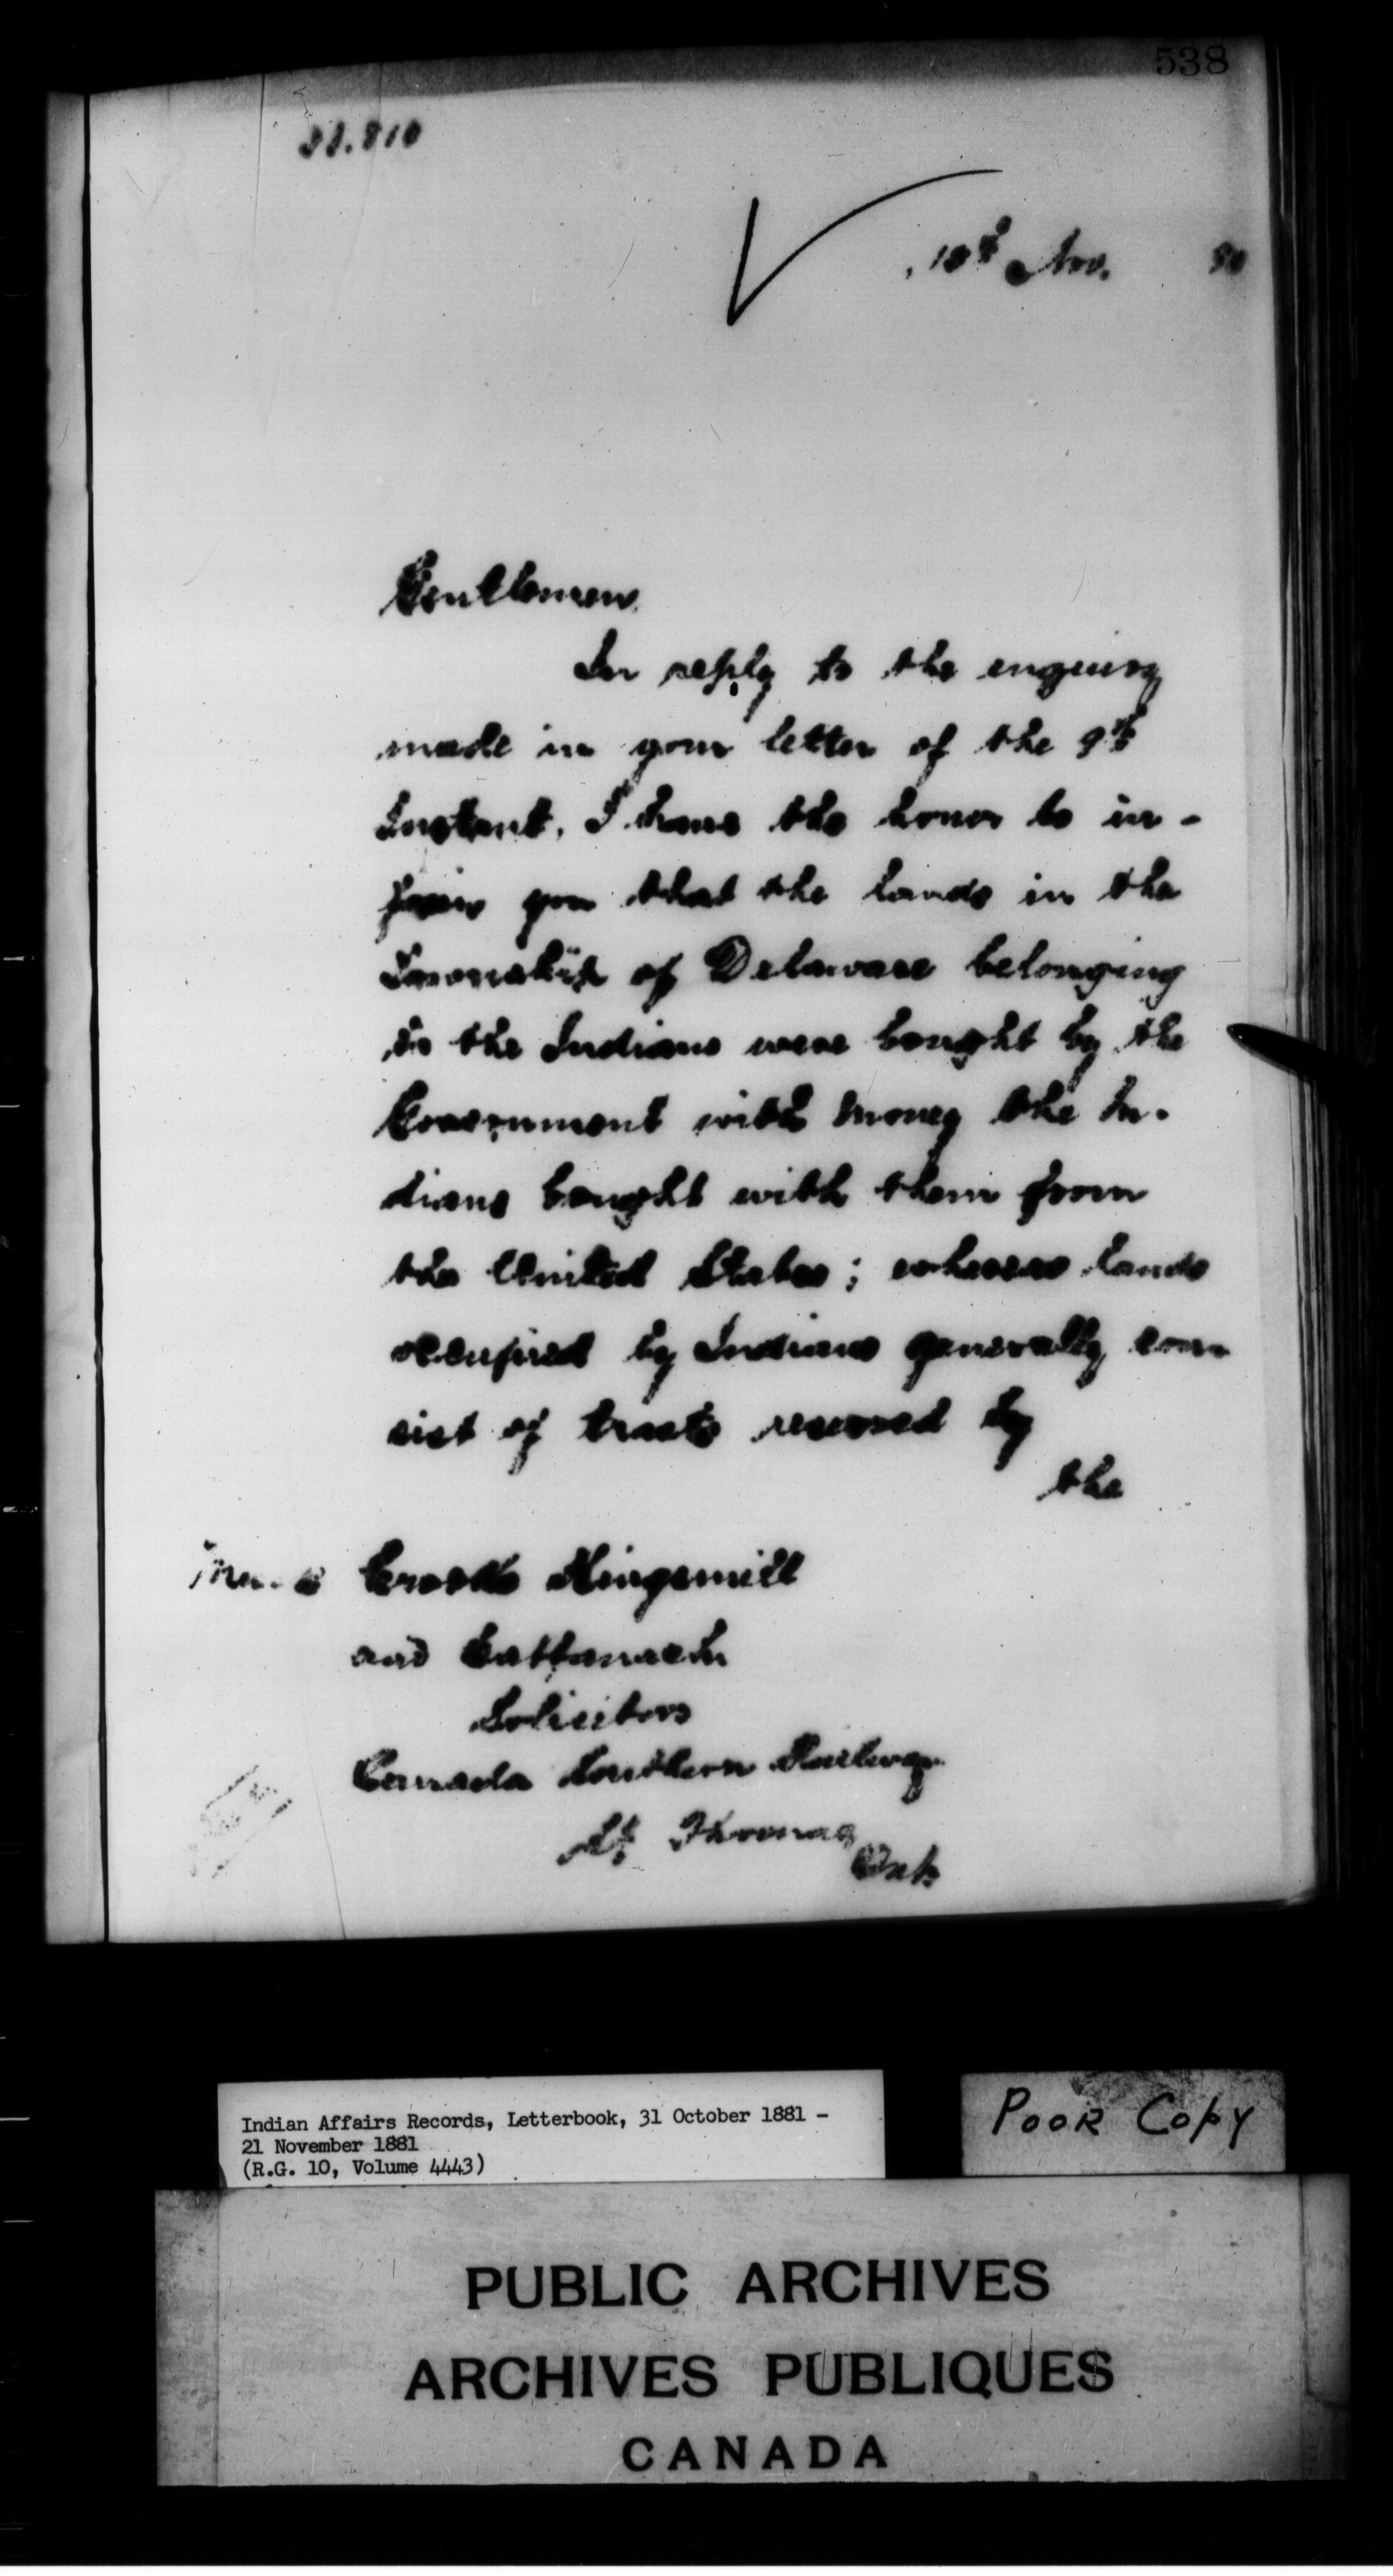 538
.810
18th Nov.
Gentlemen
In reply to the enquiry
made in your letter of the 9th
Instant, I have the honor to in-
form you that the lands in the
Township of Delaware belonging
to the Indians were bought by the
Government with money the In-
dians bought with them from
the United States; whereas lands
occupied by Indians generally con
sist of tracts reserved by
the
Crooks Kingsmill
and Cattanach
Solicitors
Canada Southern Railway
St Thomas
Ont
Indian Affairs Records, Letterbook, 31 October 1881 -
21 November 1881
(R.G. 10, Volume 4443)
POOR COPY
PUBLIC ARCHIVES
ARCHIVES PUBLIQUES
CANADA